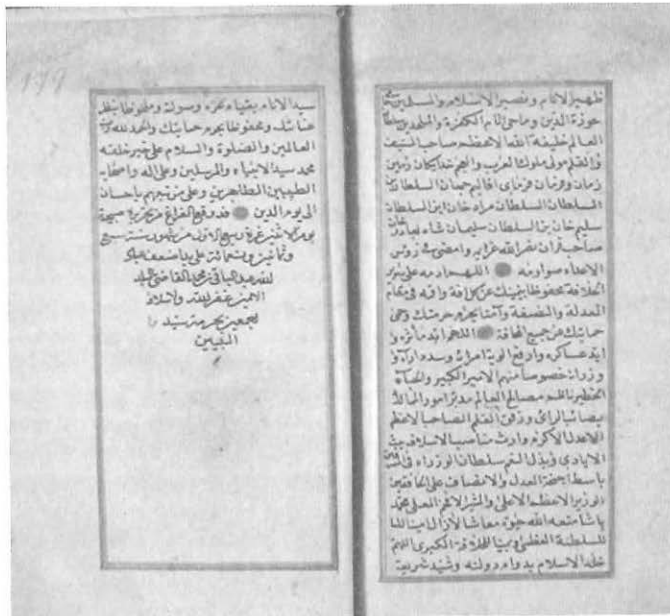 ظهير الانام ونصير الاسلام والمسلمين
حوزة الدين وماحي الكفرة والملحدين
العالم خليفة الله الاعظم صاحب السيف
والقلم مولى ملوك العرب والعجم خدايكان زمين
زمان وقرمان فرماى اقاليم جهان السلطان
السلطان السلطان مراد خان ابن السلطان
سليم خان بن السلطان سليمان شاه
صاحب قران نصر الله وامضى في رؤس
الاعداء صوارمه اللهم ادمه على سرير
الخلافة محفوظا بعينك عن كل افة وافه في مقام
المعدلة والنصفة وآمنا بحرم حرمتك وحمى
حمايتك عن جميع المخافة اللهم ابد مآثره و
ايد عساكره وارفع الوية امرائه وسدد اراء
وزرائه خصوصا منهم الامير الكبير
الخطير ناظم مصالح العالم مدبر امور الممالك
بصائب الراى القلم الصاحب الاعظم
الاعدل الاكرم وارث مناصب الاسلاف
الايادى سلطان الوزراء
باسط اجنحة العدل والانصاف على الخافقين
الوزير الاعظم الاعلى والمشير الافخم المعلى محمد
پاشا متعه الله معاشا لازال
للسلطنة العظمى للخلافة الكبرى اللهم
خلد الاسلام بدوام دولته وشيد شريعة
١٧٩
سيد الانام بضياء وصولة وملحوظا بنظر
عنايتك ومحفوظا بحرم حمايتك والحمد لله رب
العالمين والصلوة والسلام على خير خلقه
محمد سيد الانبياء والمرسلين وعلى اله واصحابه
الطيبين الطاهرين وعلى من تبعهم باحسان
الى يوم الدين قد وقع الفراغ من تحريره صبيحة
يوم الاثنين غرة ربيع الاول من شهور سنة سبع
وثمانين وتسعمائة على يد اضعف عباد
الله عبد الباقى بن محمد القاضى
الامين غفر الله له ولاسلافه
اجمعين بحرمة سيد
النبيين